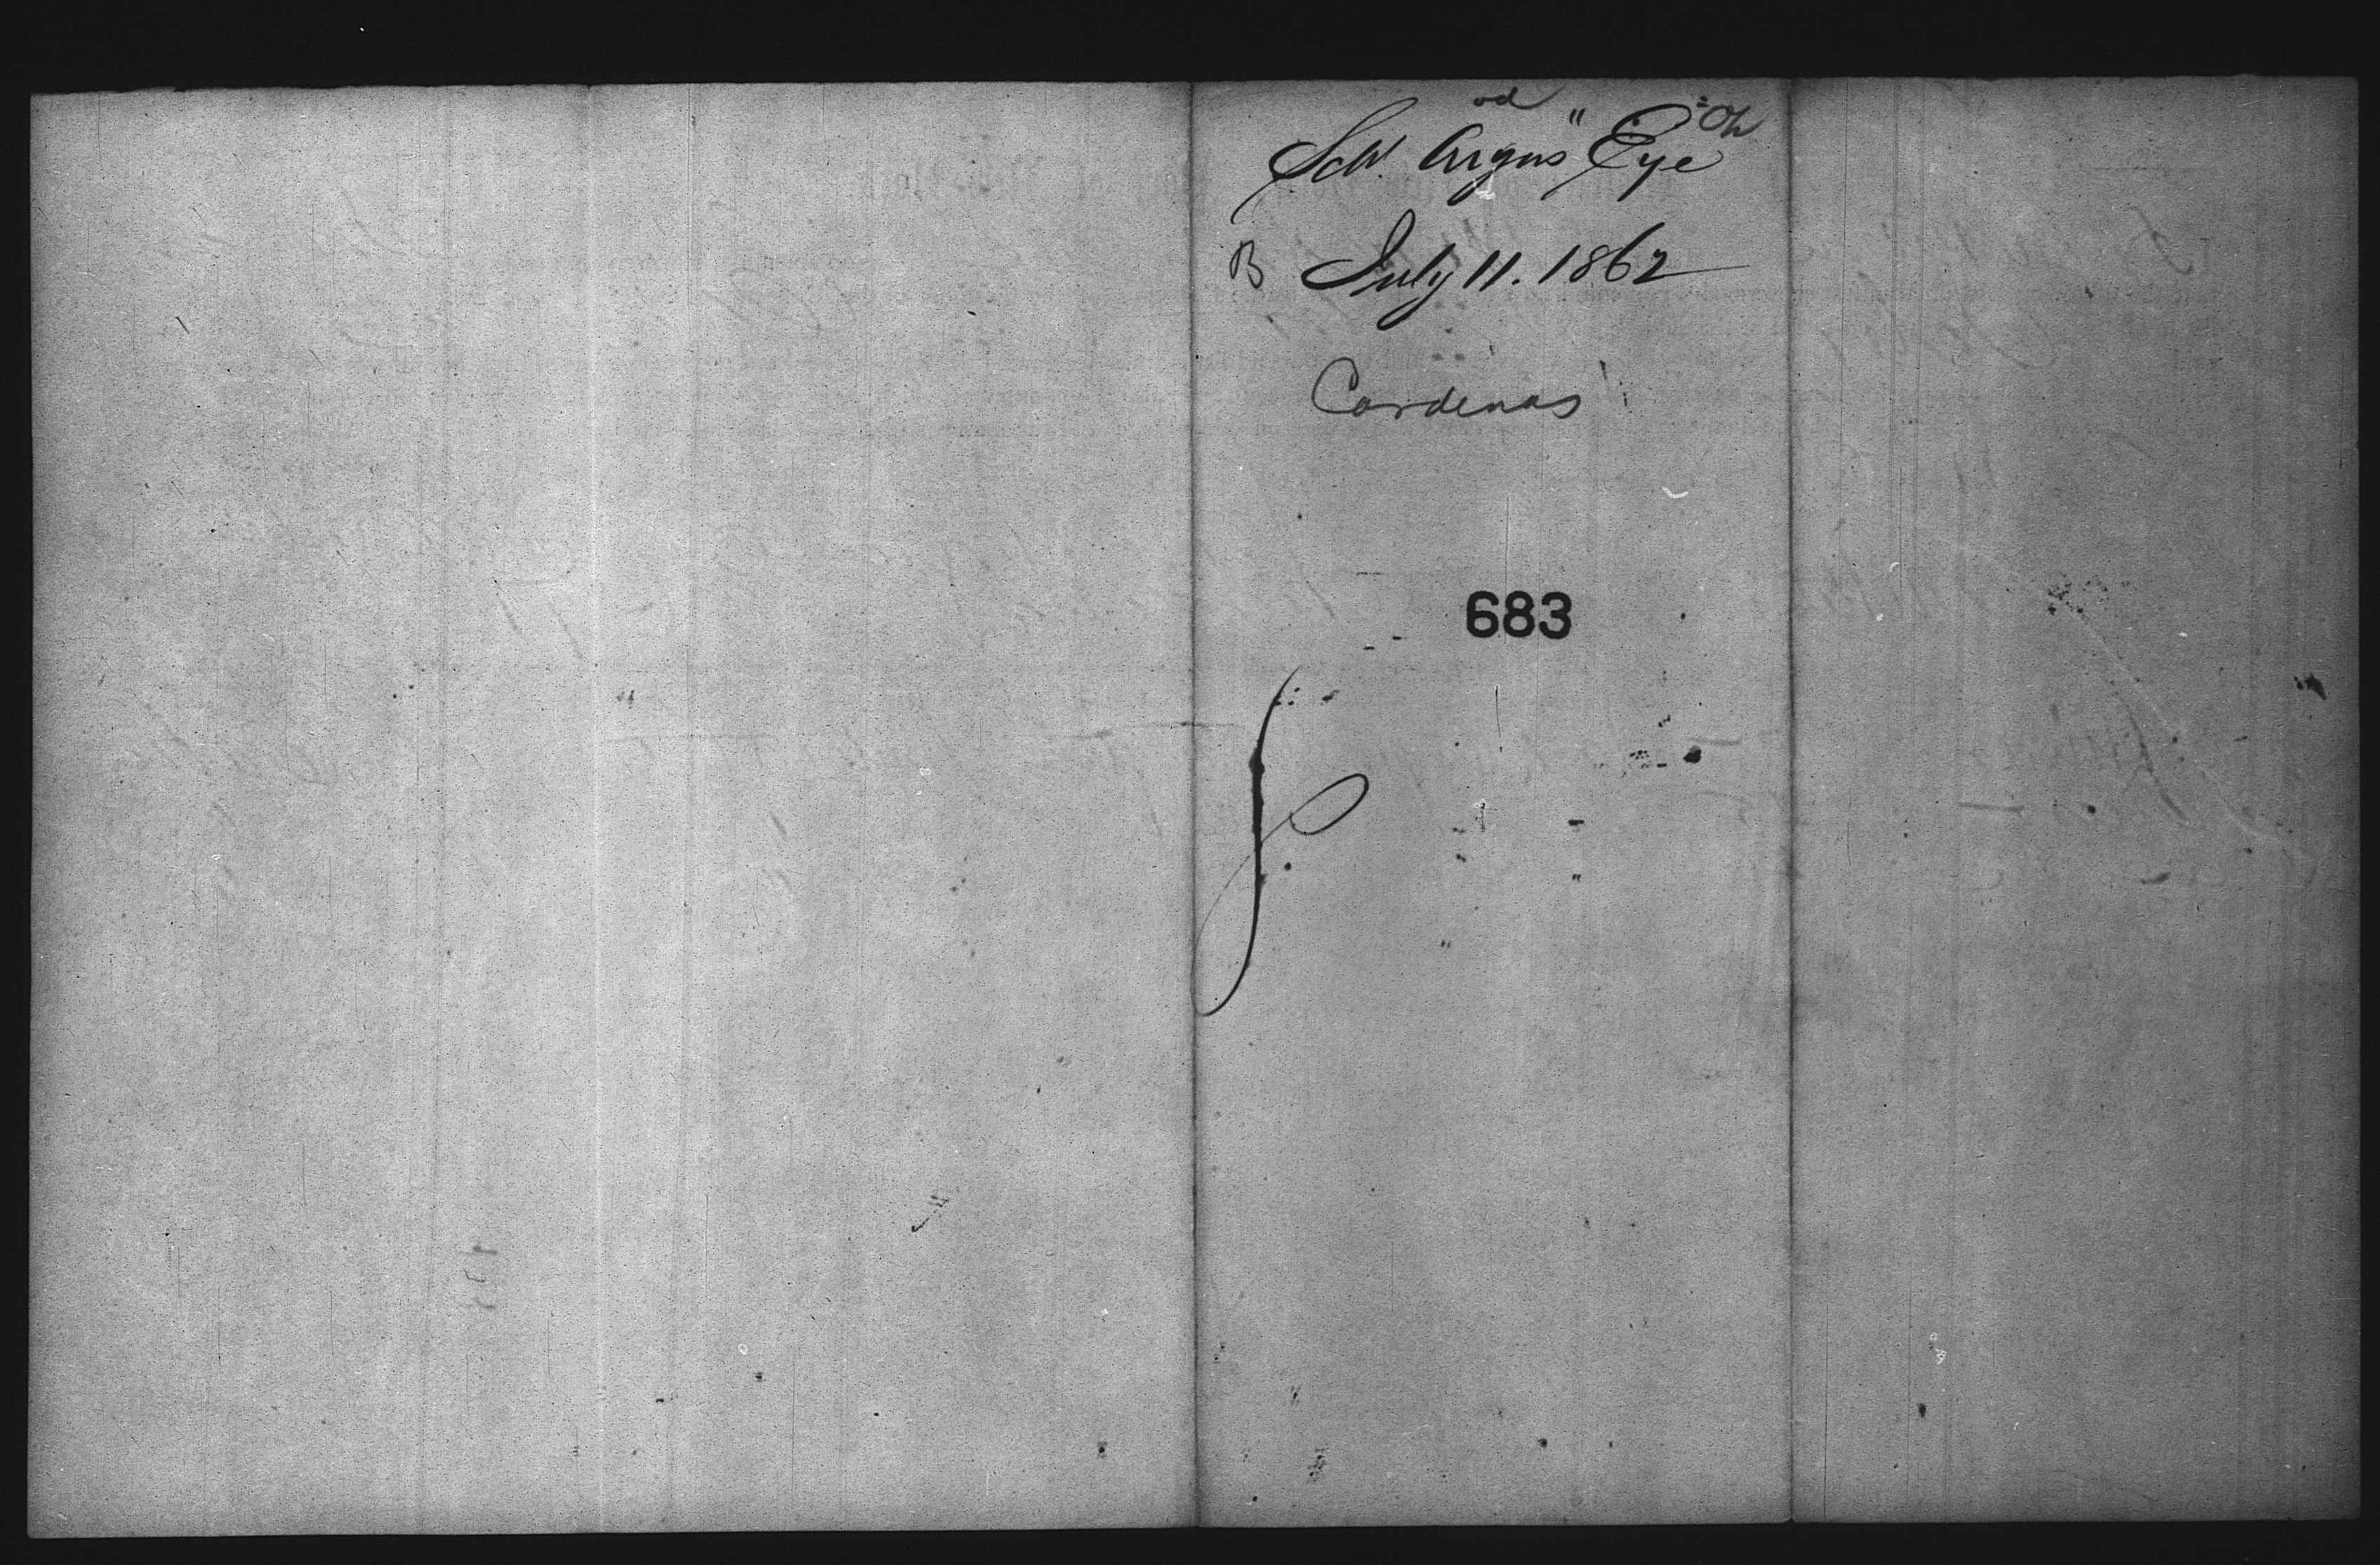 od
Sch. Argus" Eye
B July 11. 1862
Cardenas
683